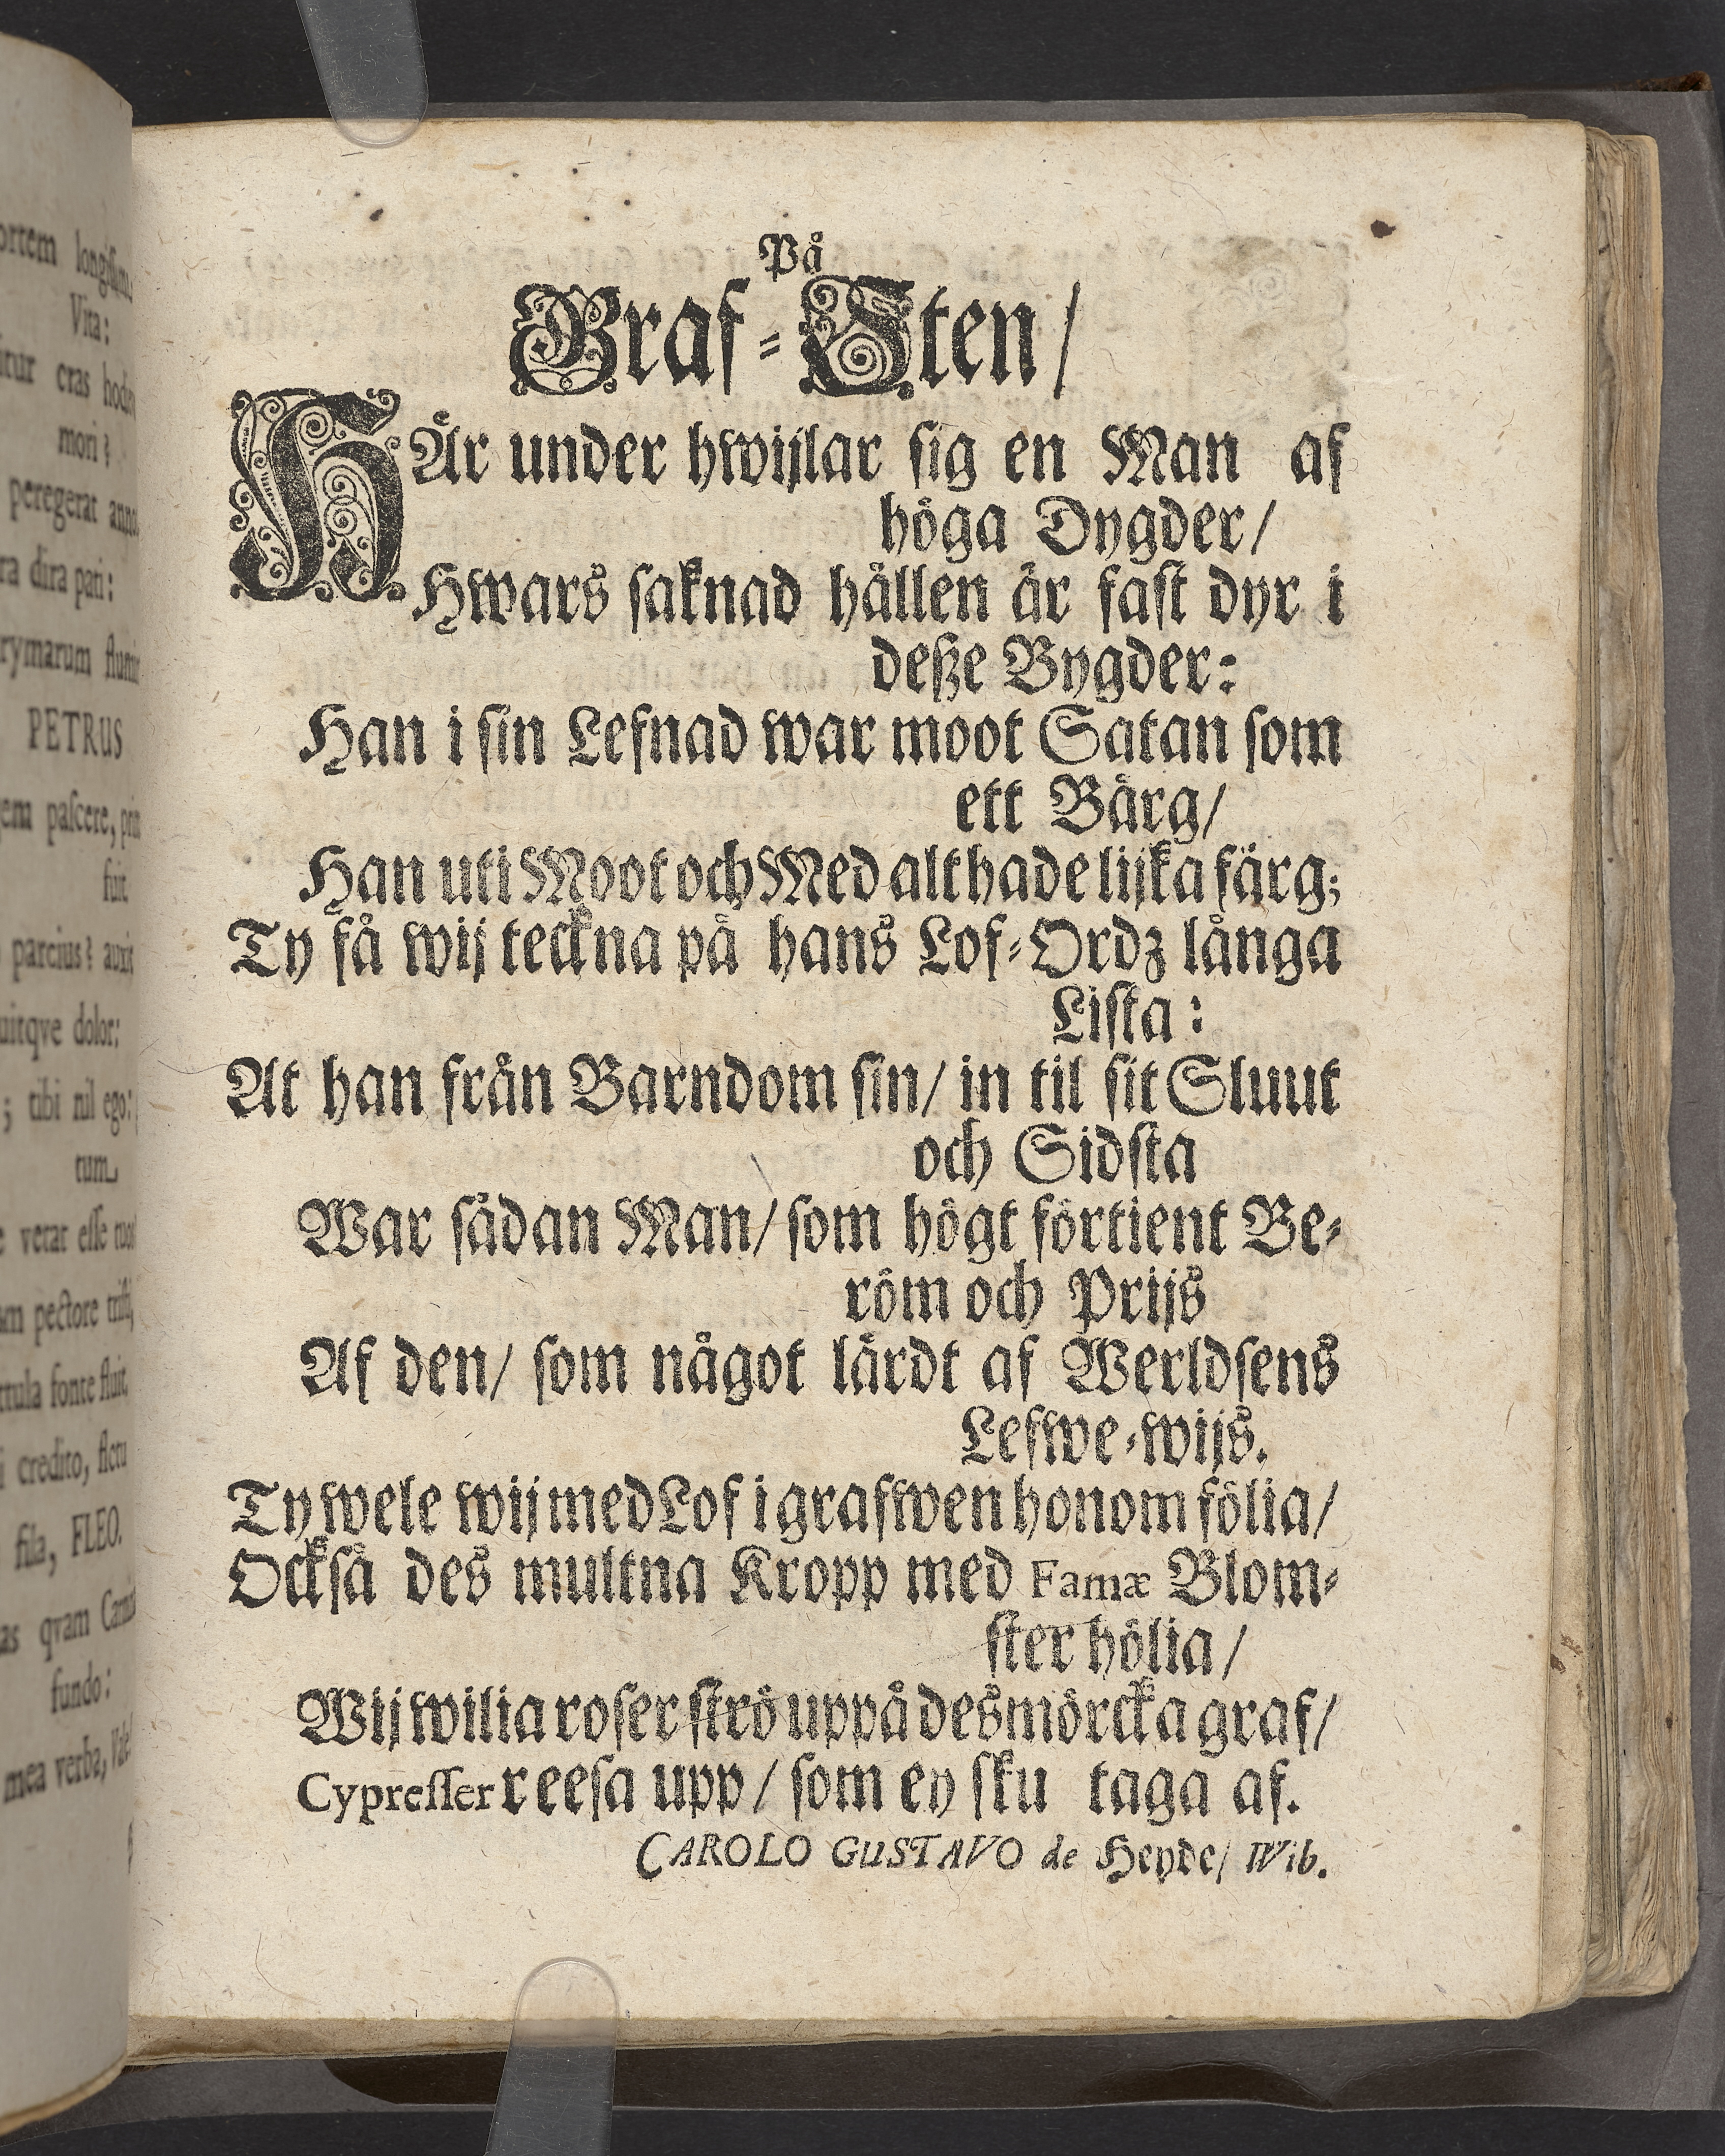 ortem
Vita:
itur cras
mori?
peregerat
ra dira pati:
rymarum
PETRUS
em pascere,
fuit.
parcius? auxit
uitqve dolor:
; tibi nil ego:
tum
verat esse
pectore tristi,
fonte fluit.
i credito,
fila, FLEO.
as qvam
fundo:
mea verba,
På
Graf-Sten/
HÄr under hwijlar sig en Man af
höga Dygder/
Hwars saknad hållen är fast dyr i
deße Bygder:
Han i sin Lefnad war moot Satan som
ett Bärg/
Han uti Moot och Med alt hade lijka färg;
Ty få wij teckna på hans Lof-Ordz långa
Lista:
At han från Barndom sin/ in til sit Sluut
och Sidsta
War sådan Man/ som högt förtient Be-
röm och Prijs
Af den/ som något lärdt af Werldsens
Lefwe-wijs.
Ty wele wij med Lof i grafwen honom fölia/
Också des multna Kropp med Famæ Blom-
ster hölia/
Wij wilia roser strö uppå des mörcka graf/
Cypresser reesa upp/ som ey sku taga af.
CAROLO GUSTAVO de Heyde/ Wib.